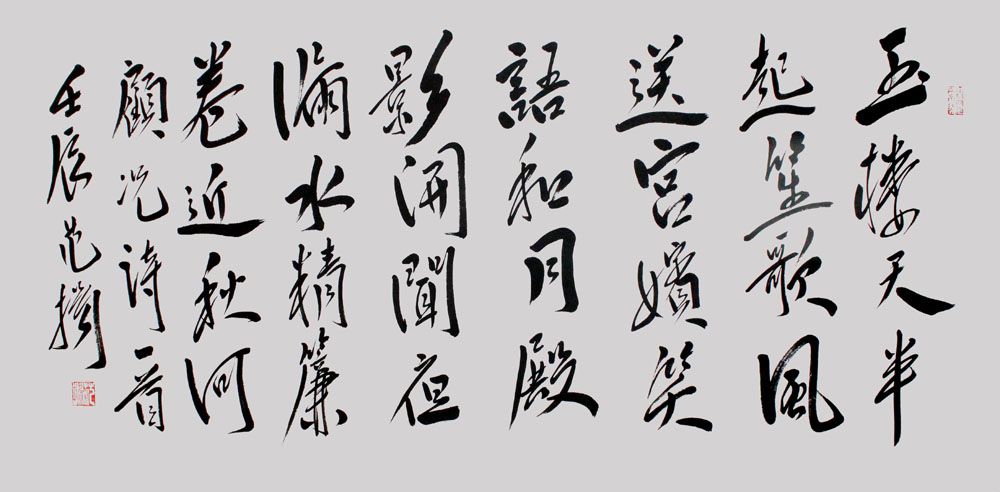 玉樓天半
起笙歌風
送宮嬪笑
語和月殿
影開聞夜
漏水精簾
卷近秋河
顧况詩一首
壬辰范